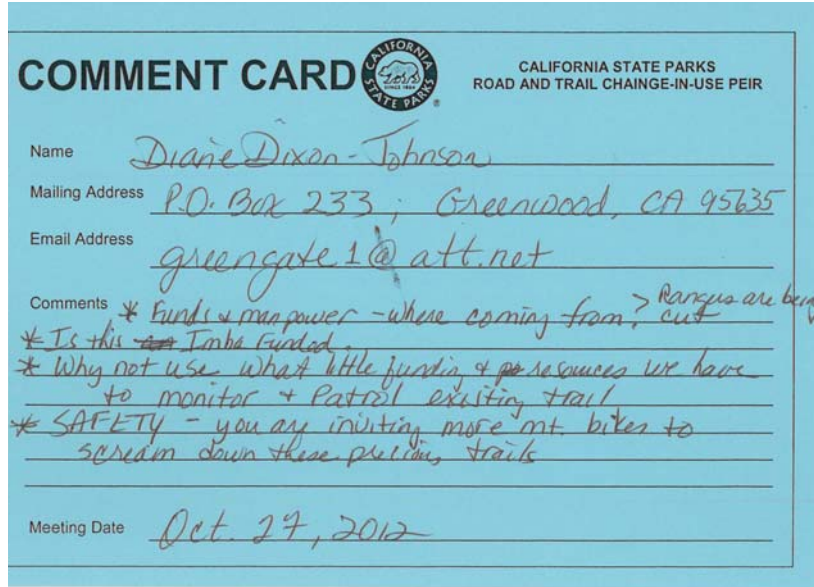 COMMENT CARD
CALIFORNIA STATE PARKS
SINCE 1864
CALIFORNIA STATE PARKS
ROAD AND TRAIL CHAINGE-IN-USE PEIR
Name Diane Dixon-Johnson
Mailing Address P.O. Box 233, Greenwood, CA 95635
Email Address greengate1@att.net
Comments * Funds & manpower - where coming from? > Rangers are being cut
* Is this Imba Funded.
* Why not use what little funding & resources we have
to monitor & Patrol existing trail
* SAFETY - you are inviting more mt. bikes to
scream down these precious trails
Meeting Date Oct. 27, 2012